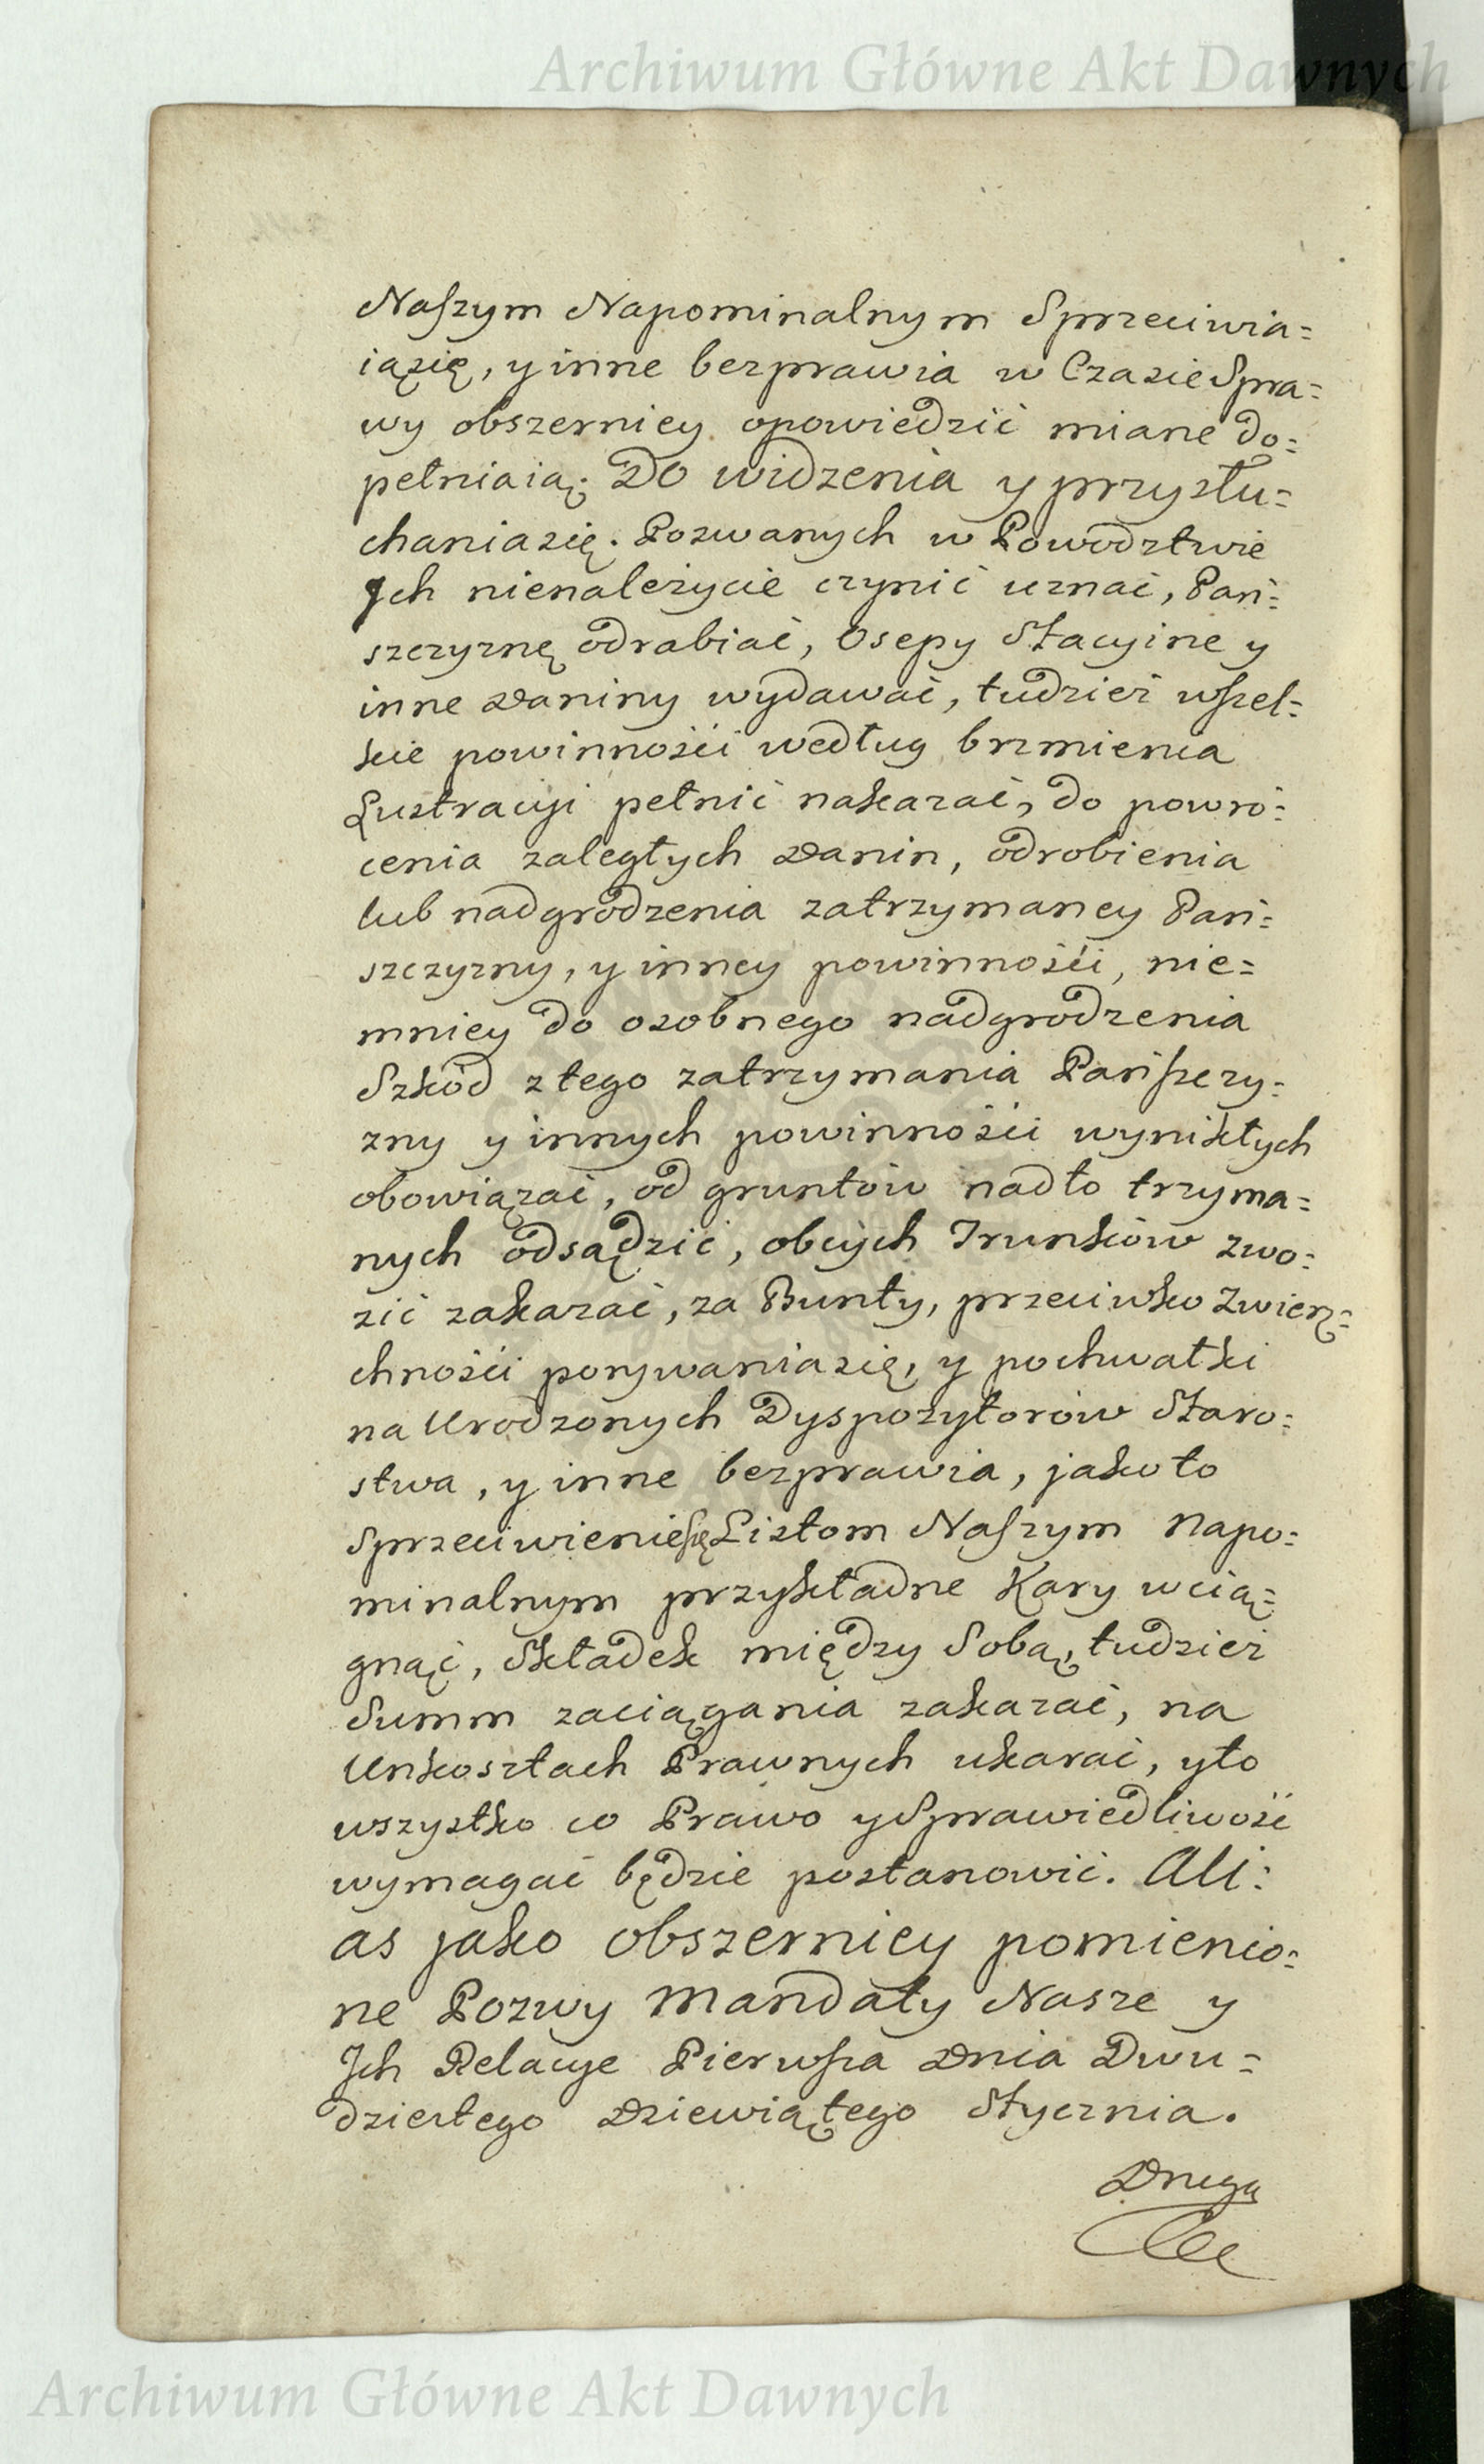 Archiwum Główne Akt Dawnych
Naszym Napominalnym Sprzeciwia=
iąsię, y inne bezprawia w Czasie Spra=
wy obszerniey opowiedzić miane do=
pełniaią. Do widzenia y przysłu=
chania się. Pozwanych w Powodztwie
Jch nienależycie czynić uznać, Pań=
szczyznę odrabiać, Osepy Stacyine y
inne Daniny wydawać, tudzież wszel=
kie powinnośći według brzmienia
Lustracyi pełnić nakazać, do powró=
cenia zaległych Danin, odrobienia
lub nadgrodzenia zatrzymaney Pań=
szczyzny, y inney powinnośći, nie=
mniey do osobnego nadgrodzenia
Szkód z tego zatrzymania Pańszczy=
zny y innych powinnośći wynikłych
obowiązać, od gruntów nadto trzyma=
nych odsądzić, obcych Trunków zwo=
zić zakazać, za Bunty, przeciwko Zwierz=
chnośći porywania się, y pochwałki
na Urodzonych Dyspozytorów Staro=
stwa, y inne bezprawia, jako to
Sprzeciwienie się Listom Naszym Napo=
minalnym przykładne Kary wcią=
gnąć, Składek między Sobą, tudzież
Summ zaciągania zakazać, na
Unkosztach Prawnych ukarać, y to
wszystko co Prawo y Sprawiedliwość
wymagać będzie postanowić. Ali=
as jako obszerniey pomienio=
ne Pozwy Mandaty Nasze y
Jch Relacye Pierwsza Dnia Dwu=
dziestego Dziewiątego Stycznia.
Druga
Archiwum Główne Akt Dawnych